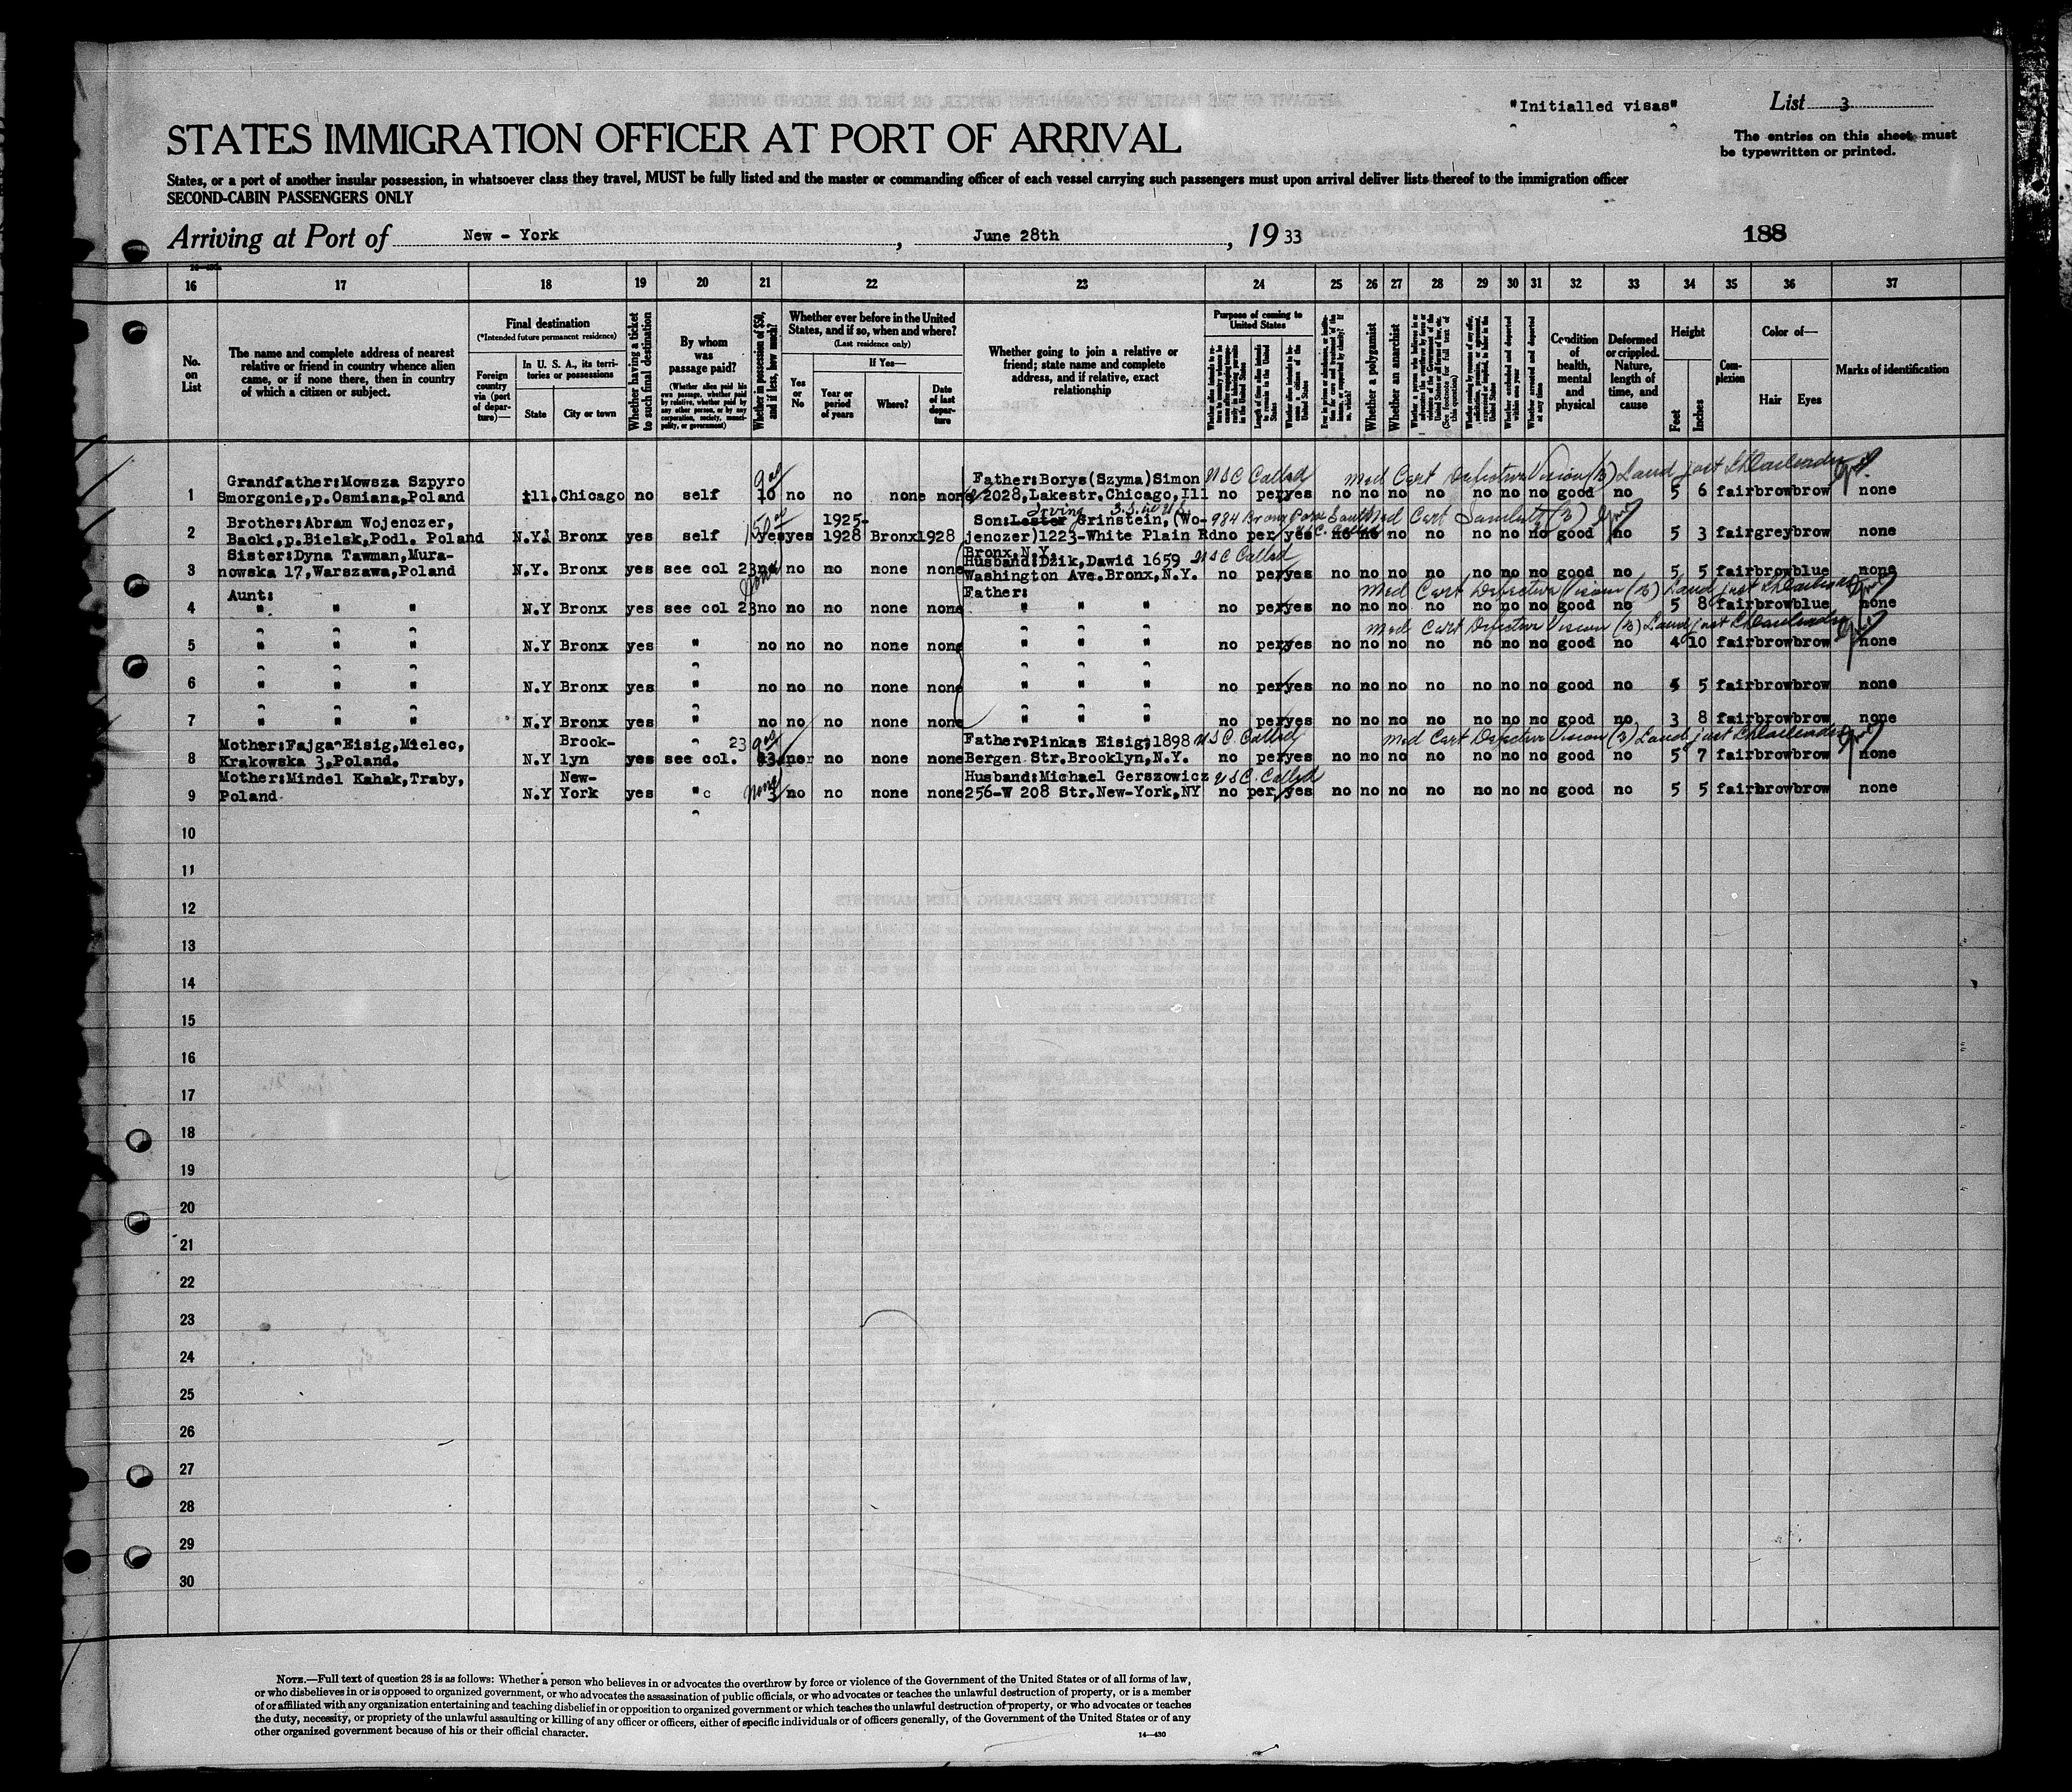 "Initialled visas"
List 3
STATES IMMIGRATION OFFICER AT PORT OF ARRIVAL
The entries on this sheet must
be typewritten or printed.
States, or a port of another insular possession, in whatsoever class they travel, MUST be fully listed and the master or commanding officer of each vessel carrying such passengers must upon arrival deliver lists thereof to the immigration officer
SECOND-CABIN PASSENGERS ONLY
Arriving at Port of New - York, June 28th, 1933
188
16 17 18 19 20 21 22 23 24 25 26 27 28 29 30 31 32 33 34 35 36 37
No. on List
The name and complete address of nearest
relative or friend in country whence alien
came, or if none there, then in country
of which a citizen or subject.
Final destination
(*Intended future permanent residence)
Foreign country via (port of departure)—
In U. S. A., its territories or possessions
State
City or town
Whether having a ticket to such final destination
By whom was passage paid?
(Whether alien paid his own passage, whether paid by relative, whether paid by any other person, or by any corporation, society, municipality, or government)
Whether in possession of $50, and if less, how much?
Whether ever before in the United
States, and if so, when and where?
(Last residence only)
Yes or No
If Yes—
Year or period of years
Where?
Date of last departure
Whether going to join a relative or
friend; state name and complete
address, and if relative, exact
relationship
Purpose of coming to United States
Length of time alien intends to remain in the United States
Whether a polygamist
Whether an anarchist
Condition of health, mental and physical
Deformed or crippled. Nature, length of time, and cause
Height
Feet
Inches
Complexion
Color of—
Hair
Eyes
Marks of identification
Grandfather:Mowsza Szpyro Father:Borys(Szyma)Simon USC Called Med Cert Defective Vision (B)
1 Smorgonie,p.Osmiana,Poland ill. Chicago no self 10 no no none none 2028,Lakestr.Chicago,Ill no per yes no no no no no no no good no 5 6 fair grey brow none
Brother:Abram Wojenczer, 1925- Irving
Son:Lester Grinstein,(Wo- 984 Bronx Park South Med Cert
2 Baoki,p.Bielsk,Podl. Poland N.Y. Bronx yes self yes yes 1928 Bronx 1928 jenozer)1223-White Plain Rd no per yes no no no no no no no good no 5 3 fair brow brow none
Bronx,N.Y.
Sister:Dyna Tawman,Mura- Husband:Dzik,Dawid 1659 USC Called
3 nowska 17,Warszawa,Poland N.Y. Bronx yes see col 23 no no no none none Washington Ave.Bronx,N.Y. no per yes no no no no no no no good no 5 5 fair brow blue none
Aunt: Father: Med Cert Defective Vision (B)
4 " " " N.Y Bronx yes see col 23 no no no none none " " " no per yes no no no no no no no good no 5 8 fair brow blue none
Med Cert Defective Vision (B)
5 " " " N.Y Bronx yes " no no no none none " " " no per yes no no no no no no no good no 4 10 fair brow brow none
6 " " " N.Y Bronx yes " no no no none none " " " no per yes no no no no no no no good no 4 5 fair brow brow none
7 " " " N.Y Bronx yes " no no no none none " " " no per yes no no no no no no no good no 3 8 fair brow brow none
Mother:Fajga Eisig,Mielec, Brook- 23 Father:Pinkas Eisig,1898 USC Called Med Cert Defective Vision (B)
8 Krakowska 3,Poland. N.Y lyn yes see col. no no none none Bergen Str.Brooklyn,N.Y. no per yes no no no no no no no good no 5 7 fair brow brow none
Mother:Mindel Kahak,Traby, New- none Husband:Michael Gerszowicz USC Called
9 Poland N.Y York yes " 3 no no none none 256-W 208 Str.New-York,NY no per yes no no no no no no no good no 5 5 fair brow brow none
10
11
12
13
14
15
16
17
18
19
20
21
22
23
24
25
26
27
28
29
30
NOTE.—Full text of question 28 is as follows: Whether a person who believes in or advocates the overthrow by force or violence of the Government of the United States or of all forms of law,
or who disbelieves in or is opposed to organized government, or who advocates the assassination of public officials, or who advocates or teaches the unlawful destruction of property, or is a member
of or affiliated with any organization entertaining and teaching disbelief in or opposition to organized government or which teaches the unlawful destruction of property, or who advocates or teaches
the duty, necessity, or propriety of the unlawful assaulting or killing of any officer or officers, either of specific individuals or of officers generally, of the Government of the United States or of any
other organized government because of his or their official character.
14—430